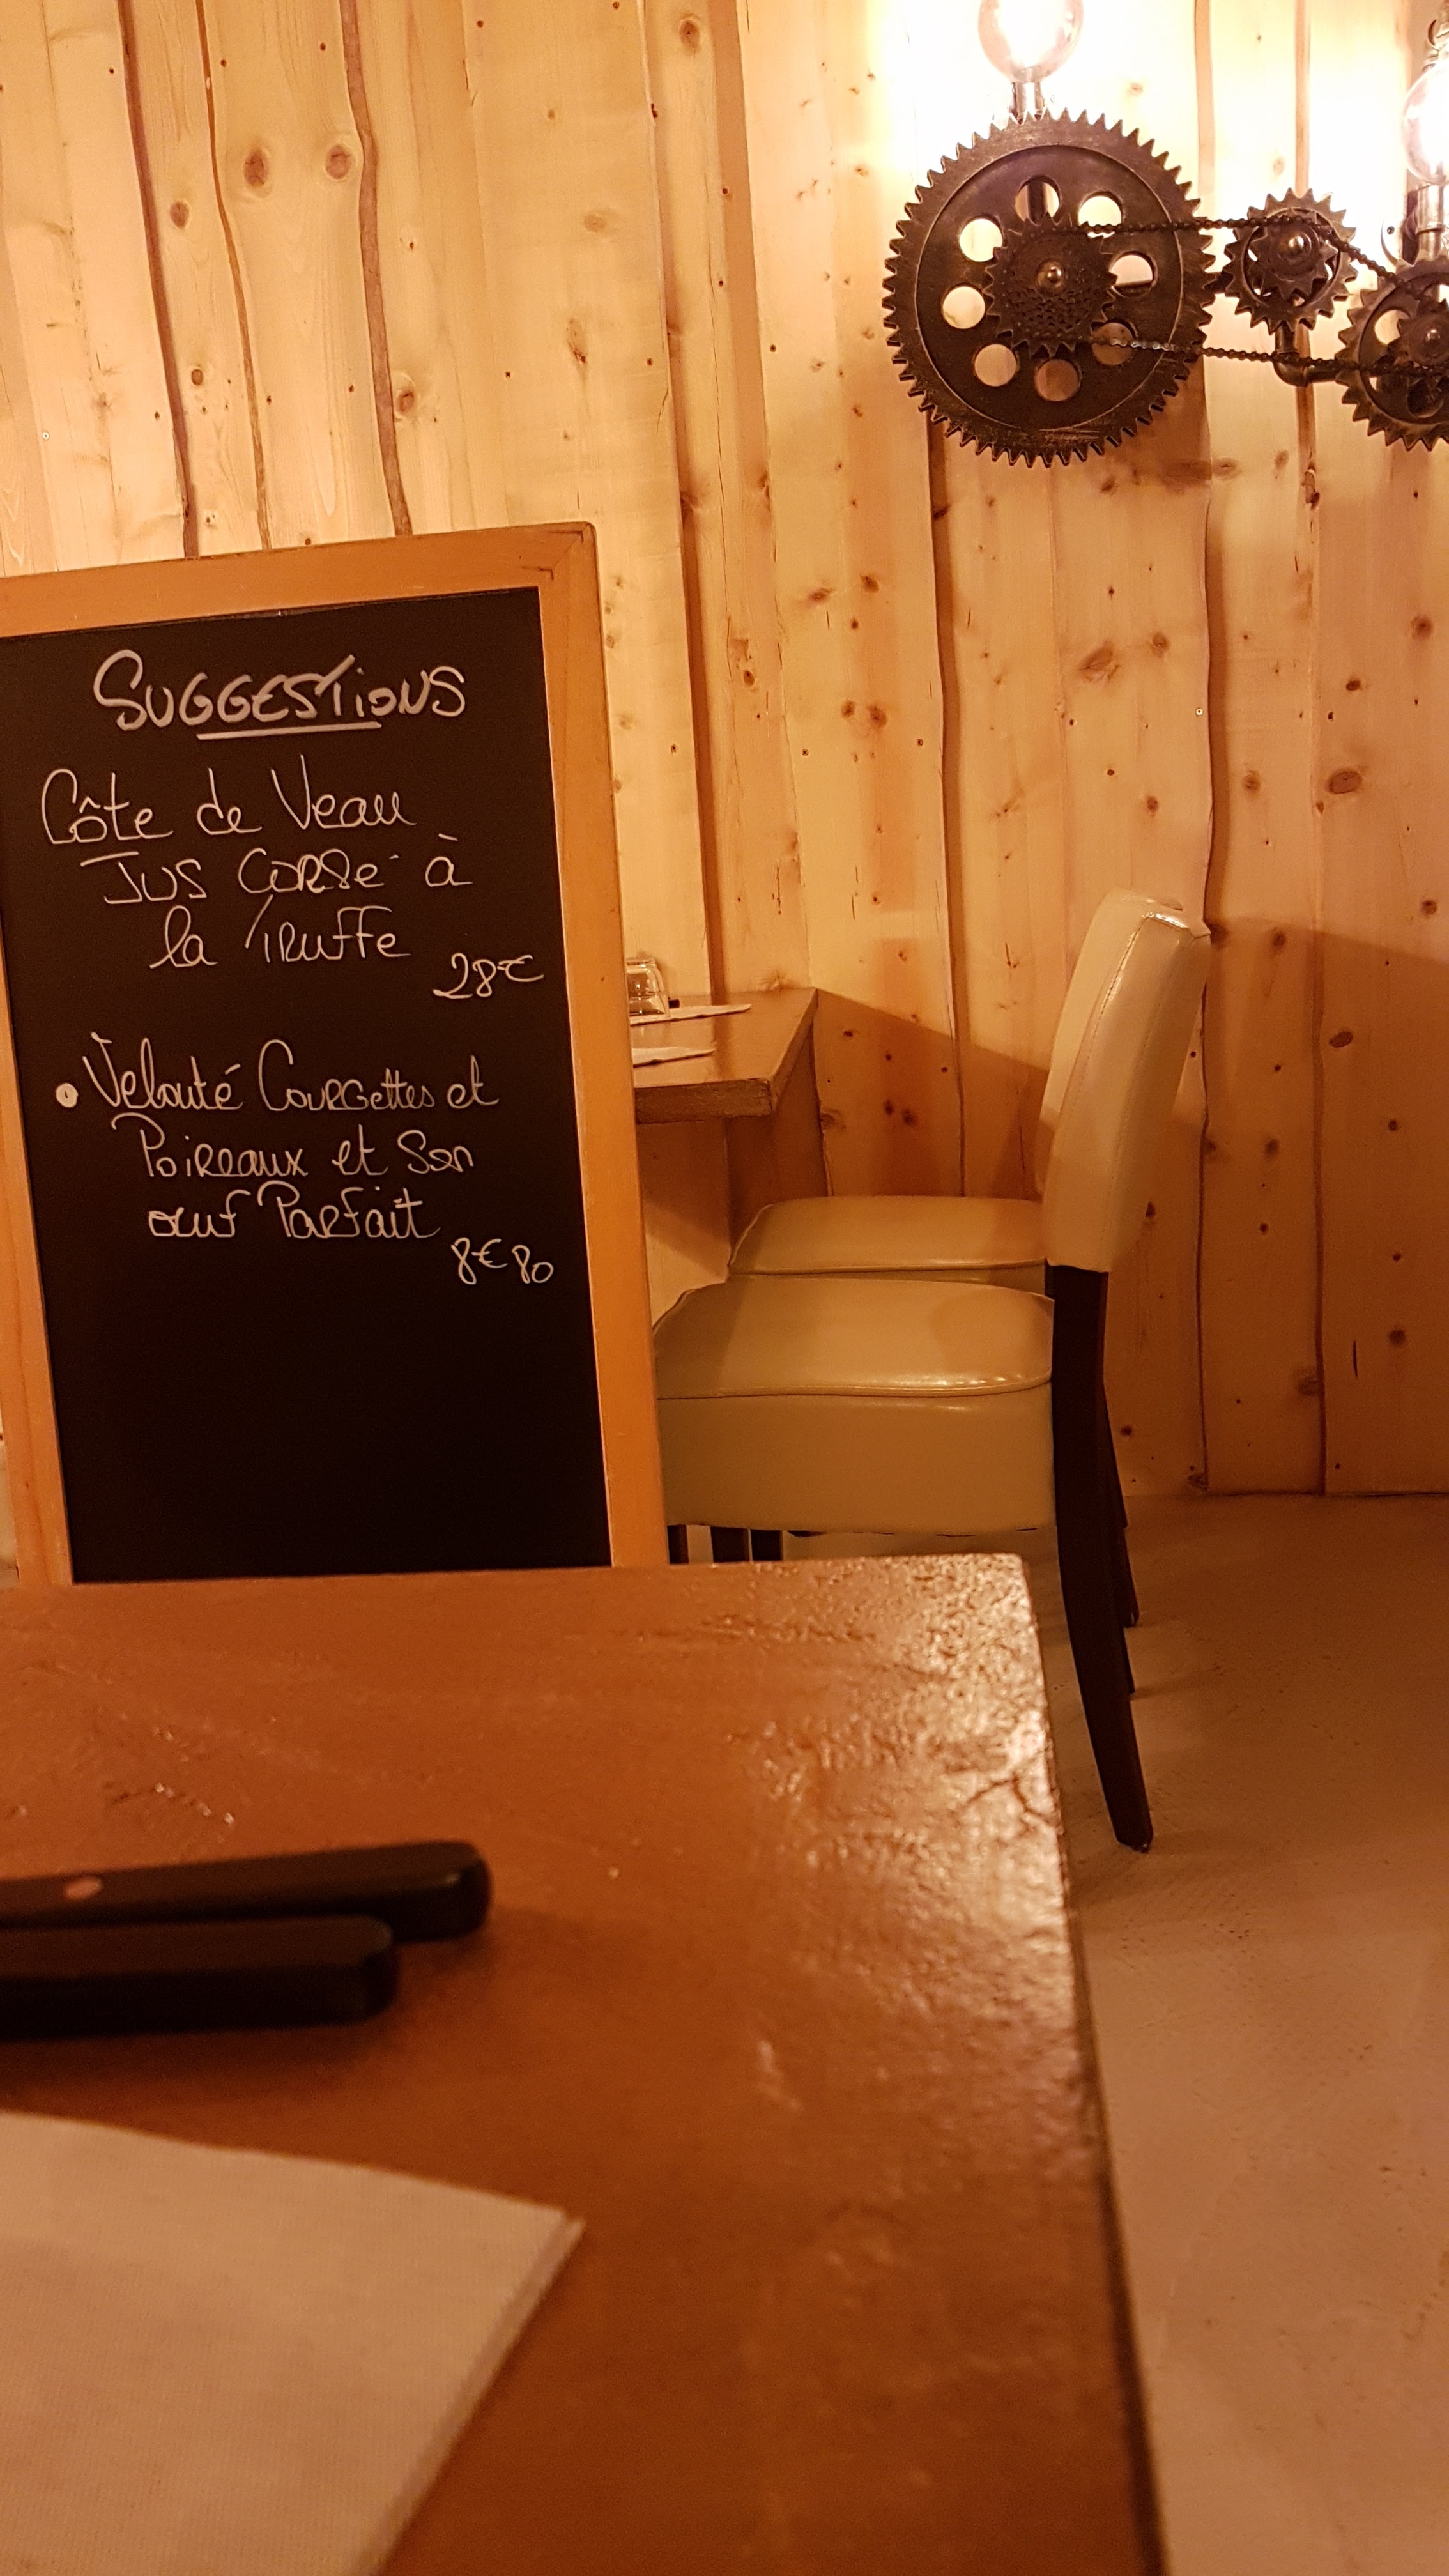 SUGGESTiONS
Côte de Veau
JUS CORSé à
la Truffe
28€
• Velouté Courgettes et
Poireaux et Son
œuf Parfait
8€80